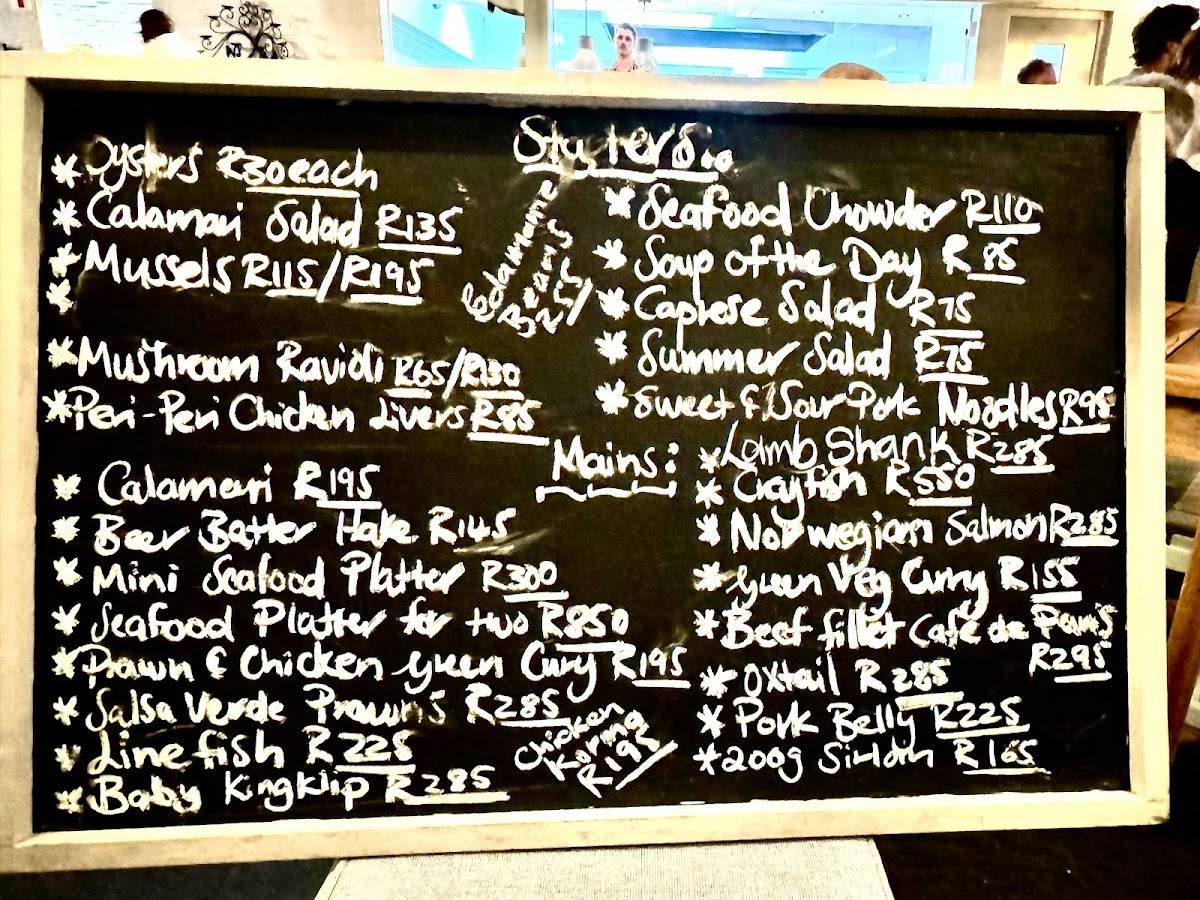 Starters..
* Oysters R30 each
* Calamari Salad R135
* Mussels R115/R195
*
* Mushroom Ravioli R65/R130
* Peri-Peri Chicken Livers R85
Edamame
Beans
R55
* Seafood Chowder R110
* Soup of the Day R85
* Caprese Salad R75
* Summer Salad R75
* Sweet & Sour Pork Noodles R95
Mains:
* Calamari R195
* Beer Batter Hake R145
* Mini Seafood Platter R300
* Seafood Platter for two R850
* Prawn & Chicken green Curry R195
* Salsa Verde Prawns R285
* Linefish R225
* Baby Kingklip R285
Chicken
Korma
R195
* Lamb Shank R285
* Crayfish R550
* Norwegian Salmon R285
* green Veg Curry R155
* Beef fillet Café de Paris
R295
* Oxtail R285
* Pork Belly R225
* 200g Sirloin R165